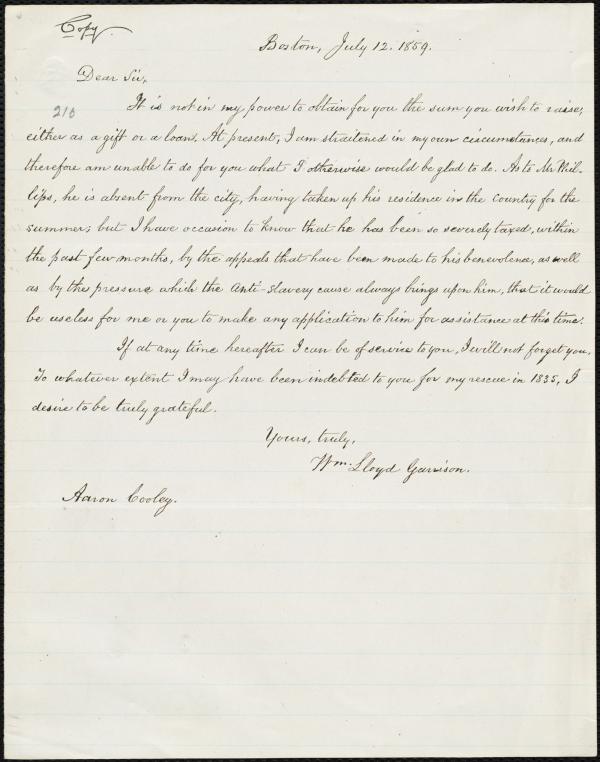 Copy.
Boston, July 12. 1859.
Dear Sir,
210
It is not in my power to obtain for you the sum you wish to raise,
either as a gift or a loan. At present, I am straitened in my own circumstances, and
therefore am unable to do for you what I otherwise would be glad to do. As to Mr Phil-
lips, he is absent from the city, having taken up his residence in the country for the
summer; but I have occasion to know that he has been so severely taxed, within
the past few months, by the appeals that have been made to his benevolence, as well
as by the pressure which the Anti-Slavery cause always brings upon him, that it would
be useless for me or you to make any application to him for assistance at this time.
If at any time hereafter I can be of service to you, I will not forget you.
To whatever extent I may have been indebted to you for my rescue in 1835, I
desire to be truly grateful.
Yours, truly,
Wm. Lloyd Garrison.
Aaron Cooley.